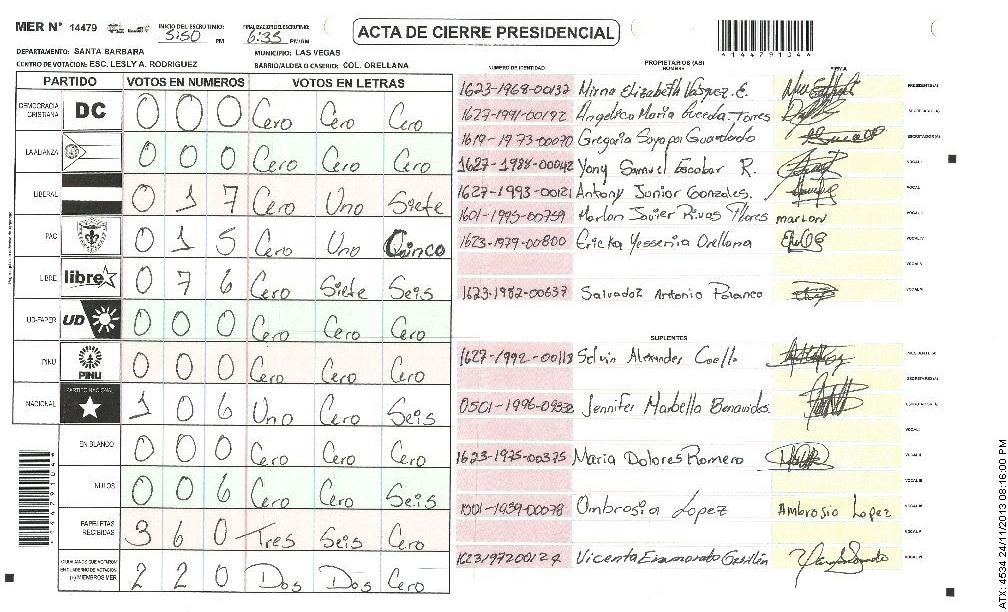 MER N° 14479
INICIO DEL ESCRUTINIO: 5:50 PM
FINALIZACION DEL ESCRUTINIO: 6:35 PM/AM
ACTA DE CIERRE PRESIDENCIAL
144791344
DEPARTAMENTO: SANTA BARBARA
MUNICIPIO: LAS VEGAS
CENTRO DE VOTACION: ESC. LESLY A. RODRIGUEZ
BARRIO/ALDEA O CASERIO: COL. ORELLANA
PARTIDO VOTOS EN NUMEROS VOTOS EN LETRAS
DEMOCRACIA CRISTIANA DC 0 0 0 Cero Cero Cero
LA ALIANZA 0 0 0 Cero Cero Cero
LIBERAL 0 1 7 Cero Uno Siete
PAC 0 1 5 Cero Uno Cinco
LIBRE libre 0 7 6 Cero Siete Seis
UD-FAPER UD 0 0 0 Cero Cero Cero
PINU PINU 0 0 0 Cero Cero Cero
NACIONAL PARTIDO NACIONAL 1 0 6 Uno Cero Seis
EN BLANCO 0 0 0 Cero Cero Cero
NULOS 0 0 6 Cero Cero Seis
PAPELETAS RECIBIDAS 3 6 0 Tres Seis Cero
CIUDADANOS QUE VOTARON EN CUADERNO DE VOTACION (+) MIEMBROS MER 2 2 0 Dos Dos Cero
PROPIETARIOS (AS)
NUMERO DE IDENTIDAD NOMBRE FIRMA
1623-1968-00132 Mirna Elizabeth Vasquez E. PRESIDENTE(A)
1627-1991-00192 Angelica Maria Torres SECRETARIO(A)
1619-1973-00070 Gregoria Sayapa Guardado
1627-1988-00042 Yony Samuel Escobar R. VOCAL I
1627-1993-00121 Antony Junior Gonzales.
1601-1995-00759 Marlon Javier Rivas Flores marlon
1623-1979-00800 Ericka Yessenia Orellana
1623-1982-00637 Salvador Antonio Polanco
SUPLENTES
1627-1992-00113 Selvin Alexander Coello
Jennifer Marbella Benavides.
1623-1975-00375 Maria Dolores Romero
1001-1939-00078 Ombrosia Lopez Ambrosio Lopez
Vicenta Enamorado
ATX: 4534 24/11/2013 08:16:00 PM